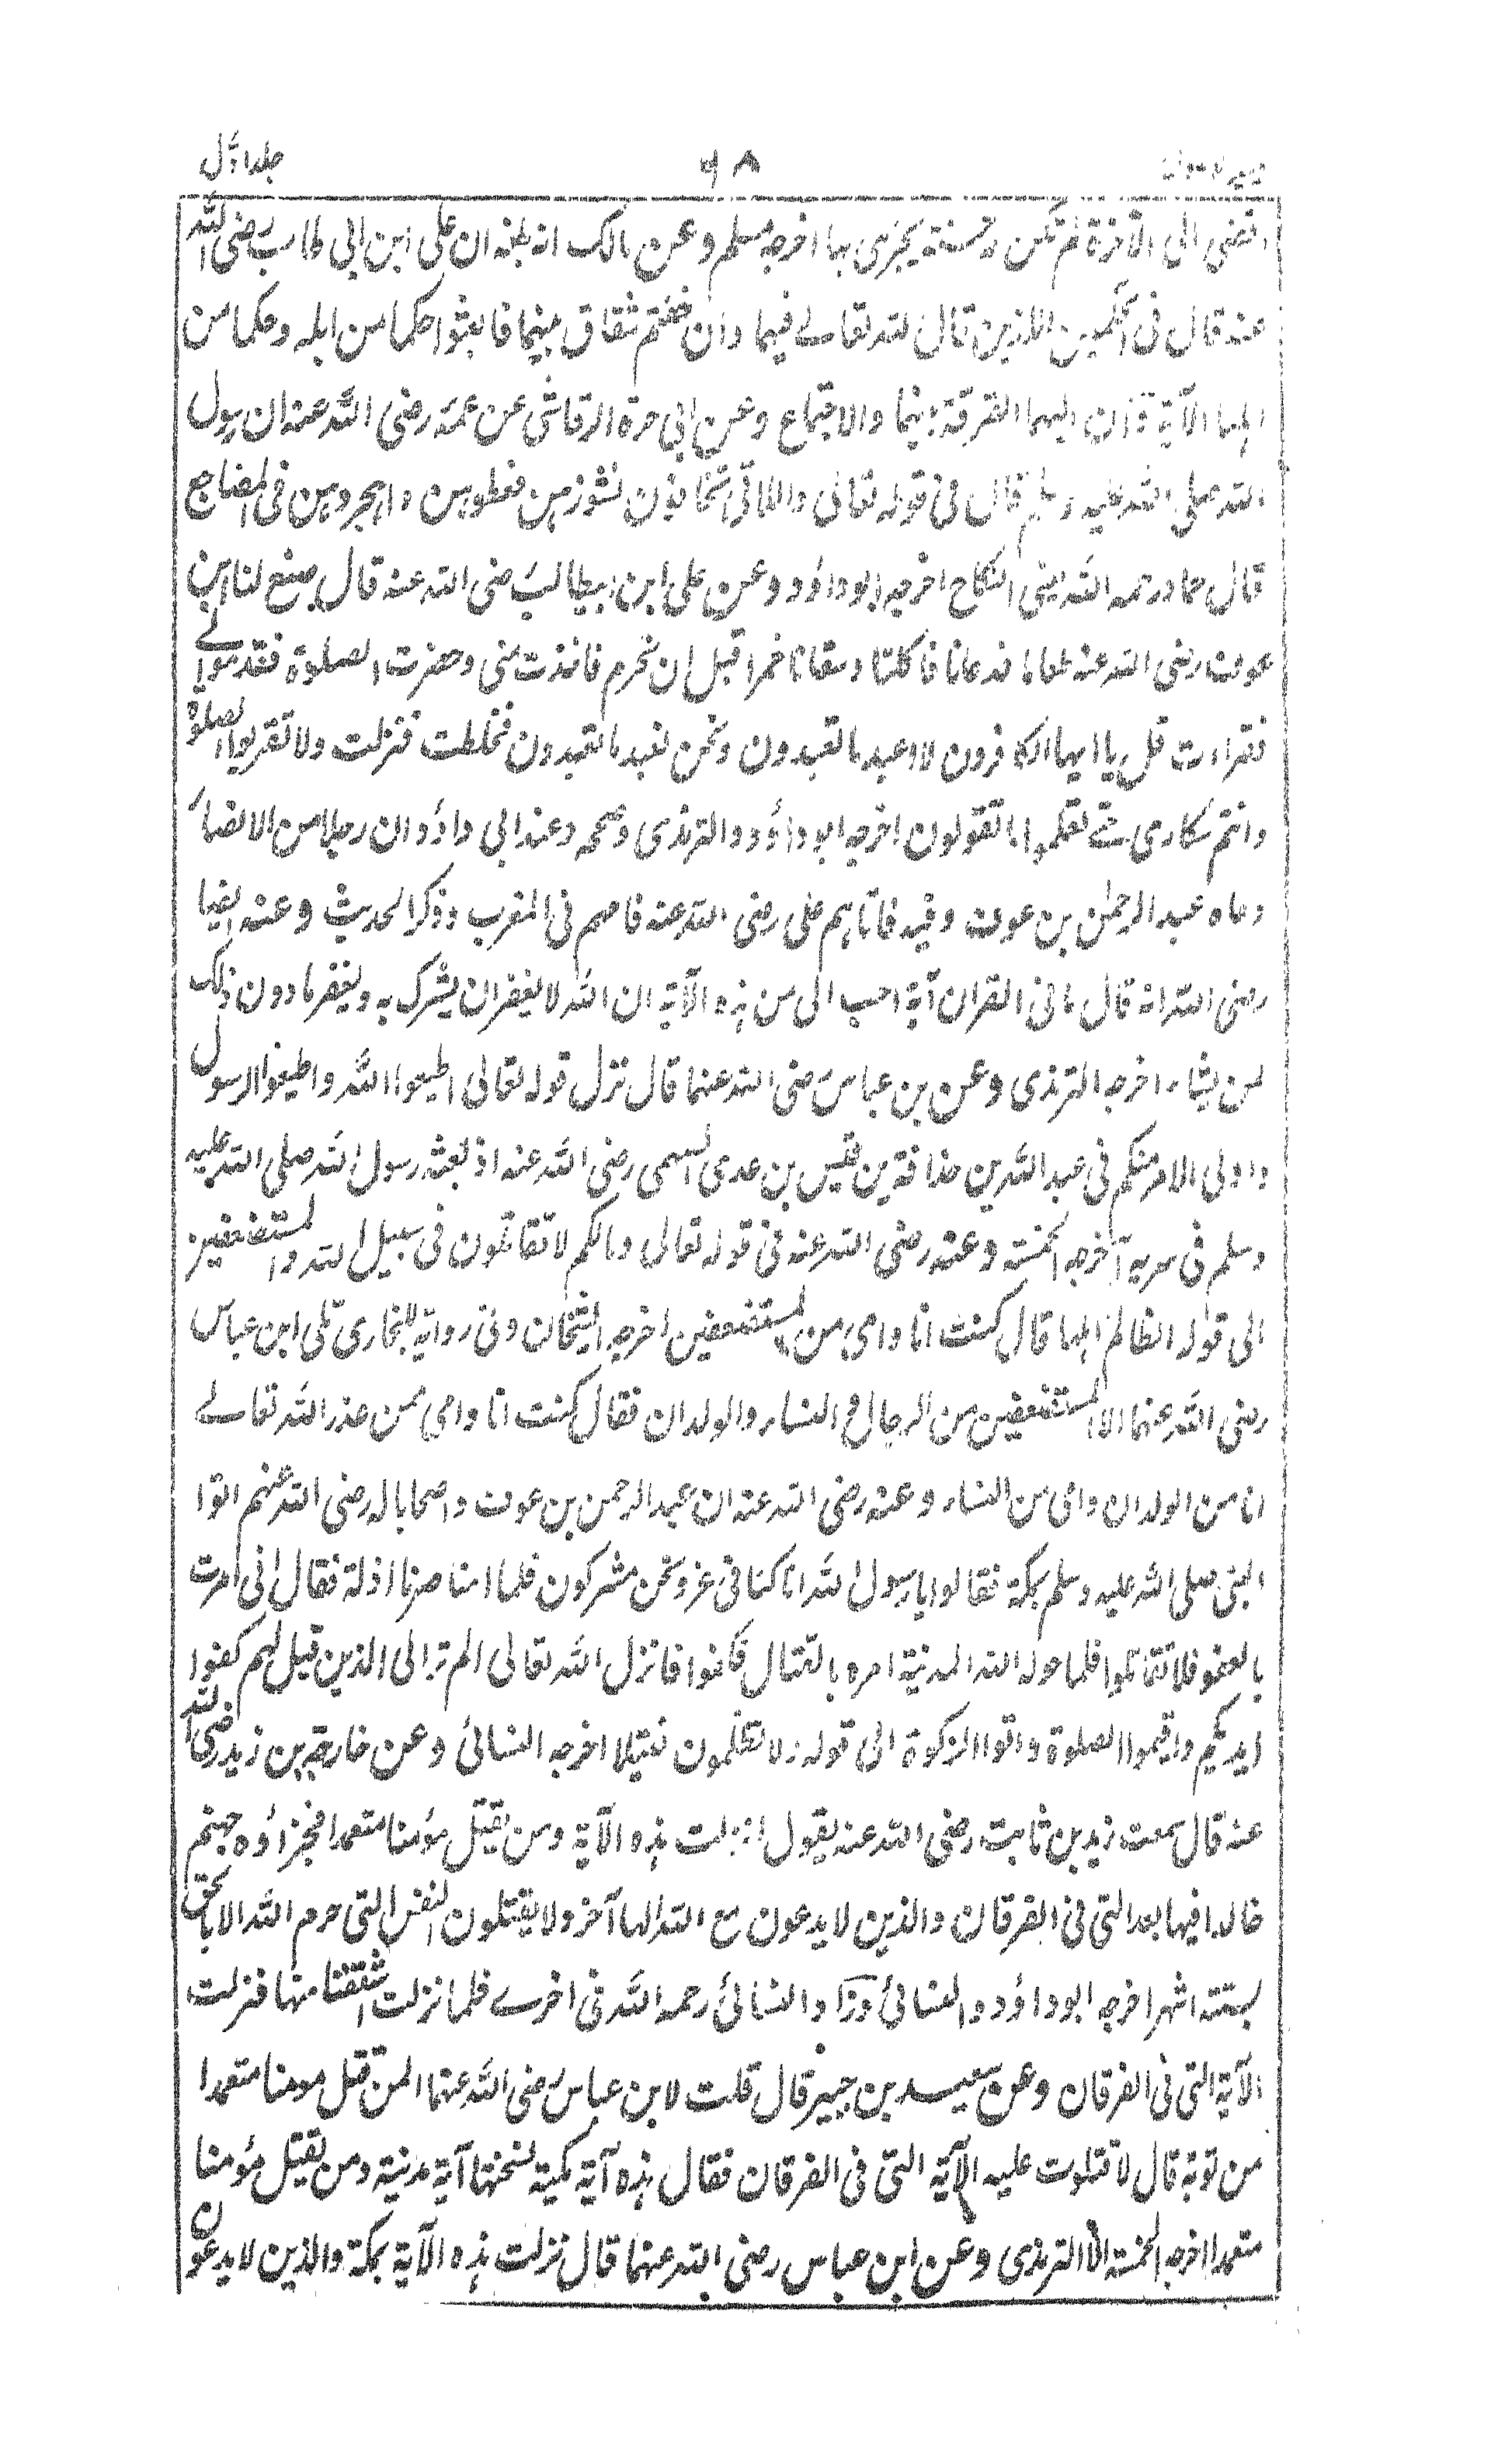 جلد اوّل
٦٨
افضى الى الآخرة لم تكن له حسنة يجزى بها اخرجه مسلم وعن مالك انه بلغه ان على ابن ابى طالب رضى الله
عنه قال فى الحكمين اللذين قال الله تعالے فيهما وان خفتم شقاق بينهما فابعثوا حكما من اهله وحكما من
اهلها الآية ان اليهما الفرقة بينهما والاجتماع وعن ابى حرة الرقاشى عن عمه رضى الله عنه ان رسول
الله صلى الله عليه وسلم قال فى قوله تعالى واللاتى تخافون نشوزهن فعظوهن واهجروهن فى المضاجع
قال حماد رحمه الله يعنى النكاح اخرجه ابو داؤد وعن على ابن ابيطالب رضى الله عنه قال صنع لنا ابن
عوف رضى الله عنه طعاما فدعانا فاكلنا وسقانا خمرا قبل ان تحرم فاخذت منى وحضرت الصلوة فقدمونے
فقراءت قل يا ايها الكافرون لا اعبد ما تعبدون ونحن نعبد ما تعبدون فخلطت فنزلت ولا تقربوا الصلوة
وانتم سكارى حتے تعلموا ما تقولون اخرجه ابو داؤد والترمذى وصححه وعند ابى داؤد ان رجلا من الانصار
دعاه عبد الرحمٰن بن عوف وفيه فاتاهم على رضى الله عنه فامهم فى المغرب وذكر الحديث وعنه ايضا
رضى الله انه قال ما فى القران آية احب الى من هذه الآية ان الله لا يغفر ان يشرك به ويغفر ما دون ذلك
لمن يشاء اخرجه الترمذى وعن بن عباس رضى الله عنهما قال نزل قوله تعالى اطيعوا الله واطيعوا الرسول
واولى الامر منكم فى عبد الله بن حذافة بن قيس بن عدى السهمى رضى الله عنه اذ بعثه رسول الله صلى الله عليه
وسلم فى سرية اخرجه الخمسة وعنه رضى الله عنه فى قوله تعالى ومالكم لا تقاتلون فى سبيل الله والمستضعفين
الى قوله الظالم اهلها قال كنت انا وامى من المستضعفين اخرجه الشيخان وفى رواية للبخارى تلى ابن عباس
رضى الله عنهما الا المستضعفين من الرجال والنساء والولدان فقال كنت انا وامى ممن عذر الله تعالے
انا من الولدان وامى من النساء وعنه رضى الله عنه ان عبد الرحمن بن عوف واصحابا له رضى الله عنهم اتوا
النبى صلى الله عليه وسلم بمكة فقالوا يا رسول الله انا كنا فى عز ونحن مشركون فلما امنا صرنا اذلة فقال انى امرت
بالعفو فلا تقاتلوا فلما حوله الله المدينة امره بالقتال فكفوا فانزل الله تعالى الم تر الى الذين قيل لهم كفوا
ايديكم واقيموا الصلوة واتوا الزكوة الى قوله ولا تظلمون فتيلا اخرجه النسائى وعن خارجة بن زيد رضى الله
عنه قال سمعت زيد بن ثابت رضى الله عنه يقول انزلت هذه الآية ومن يقتل مؤمنا متعمدا فجزاؤه جهنم
خالدا فيها بعد التى فى الفرقان والذين لا يدعون مع الله الها آخر ولا يقتلون النفس التى حرم الله الا بالحق
بستة اشهر اخرجه ابو داؤد والنسائى وزاد النسائى رحمه الله فى اخرے فلما نزلت اشفقنا منها فنزلت
الآية التى فى الفرقان وعن سعيد بن جبير قال قلت لابن عباس رضى الله عنهما المن قتل مومنا متعمدا
من توبة قال لا فتلوت عليه الآية التى فى الفرقان فقال هذه آية مكية نسختها آية مدنية ومن يقتل مؤمنا
متعمدا اخرجه الخمسة الا الترمذى وعن ابن عباس رضى الله عنهما قال نزلت هذه الآية بمكة والذين لا يدعون